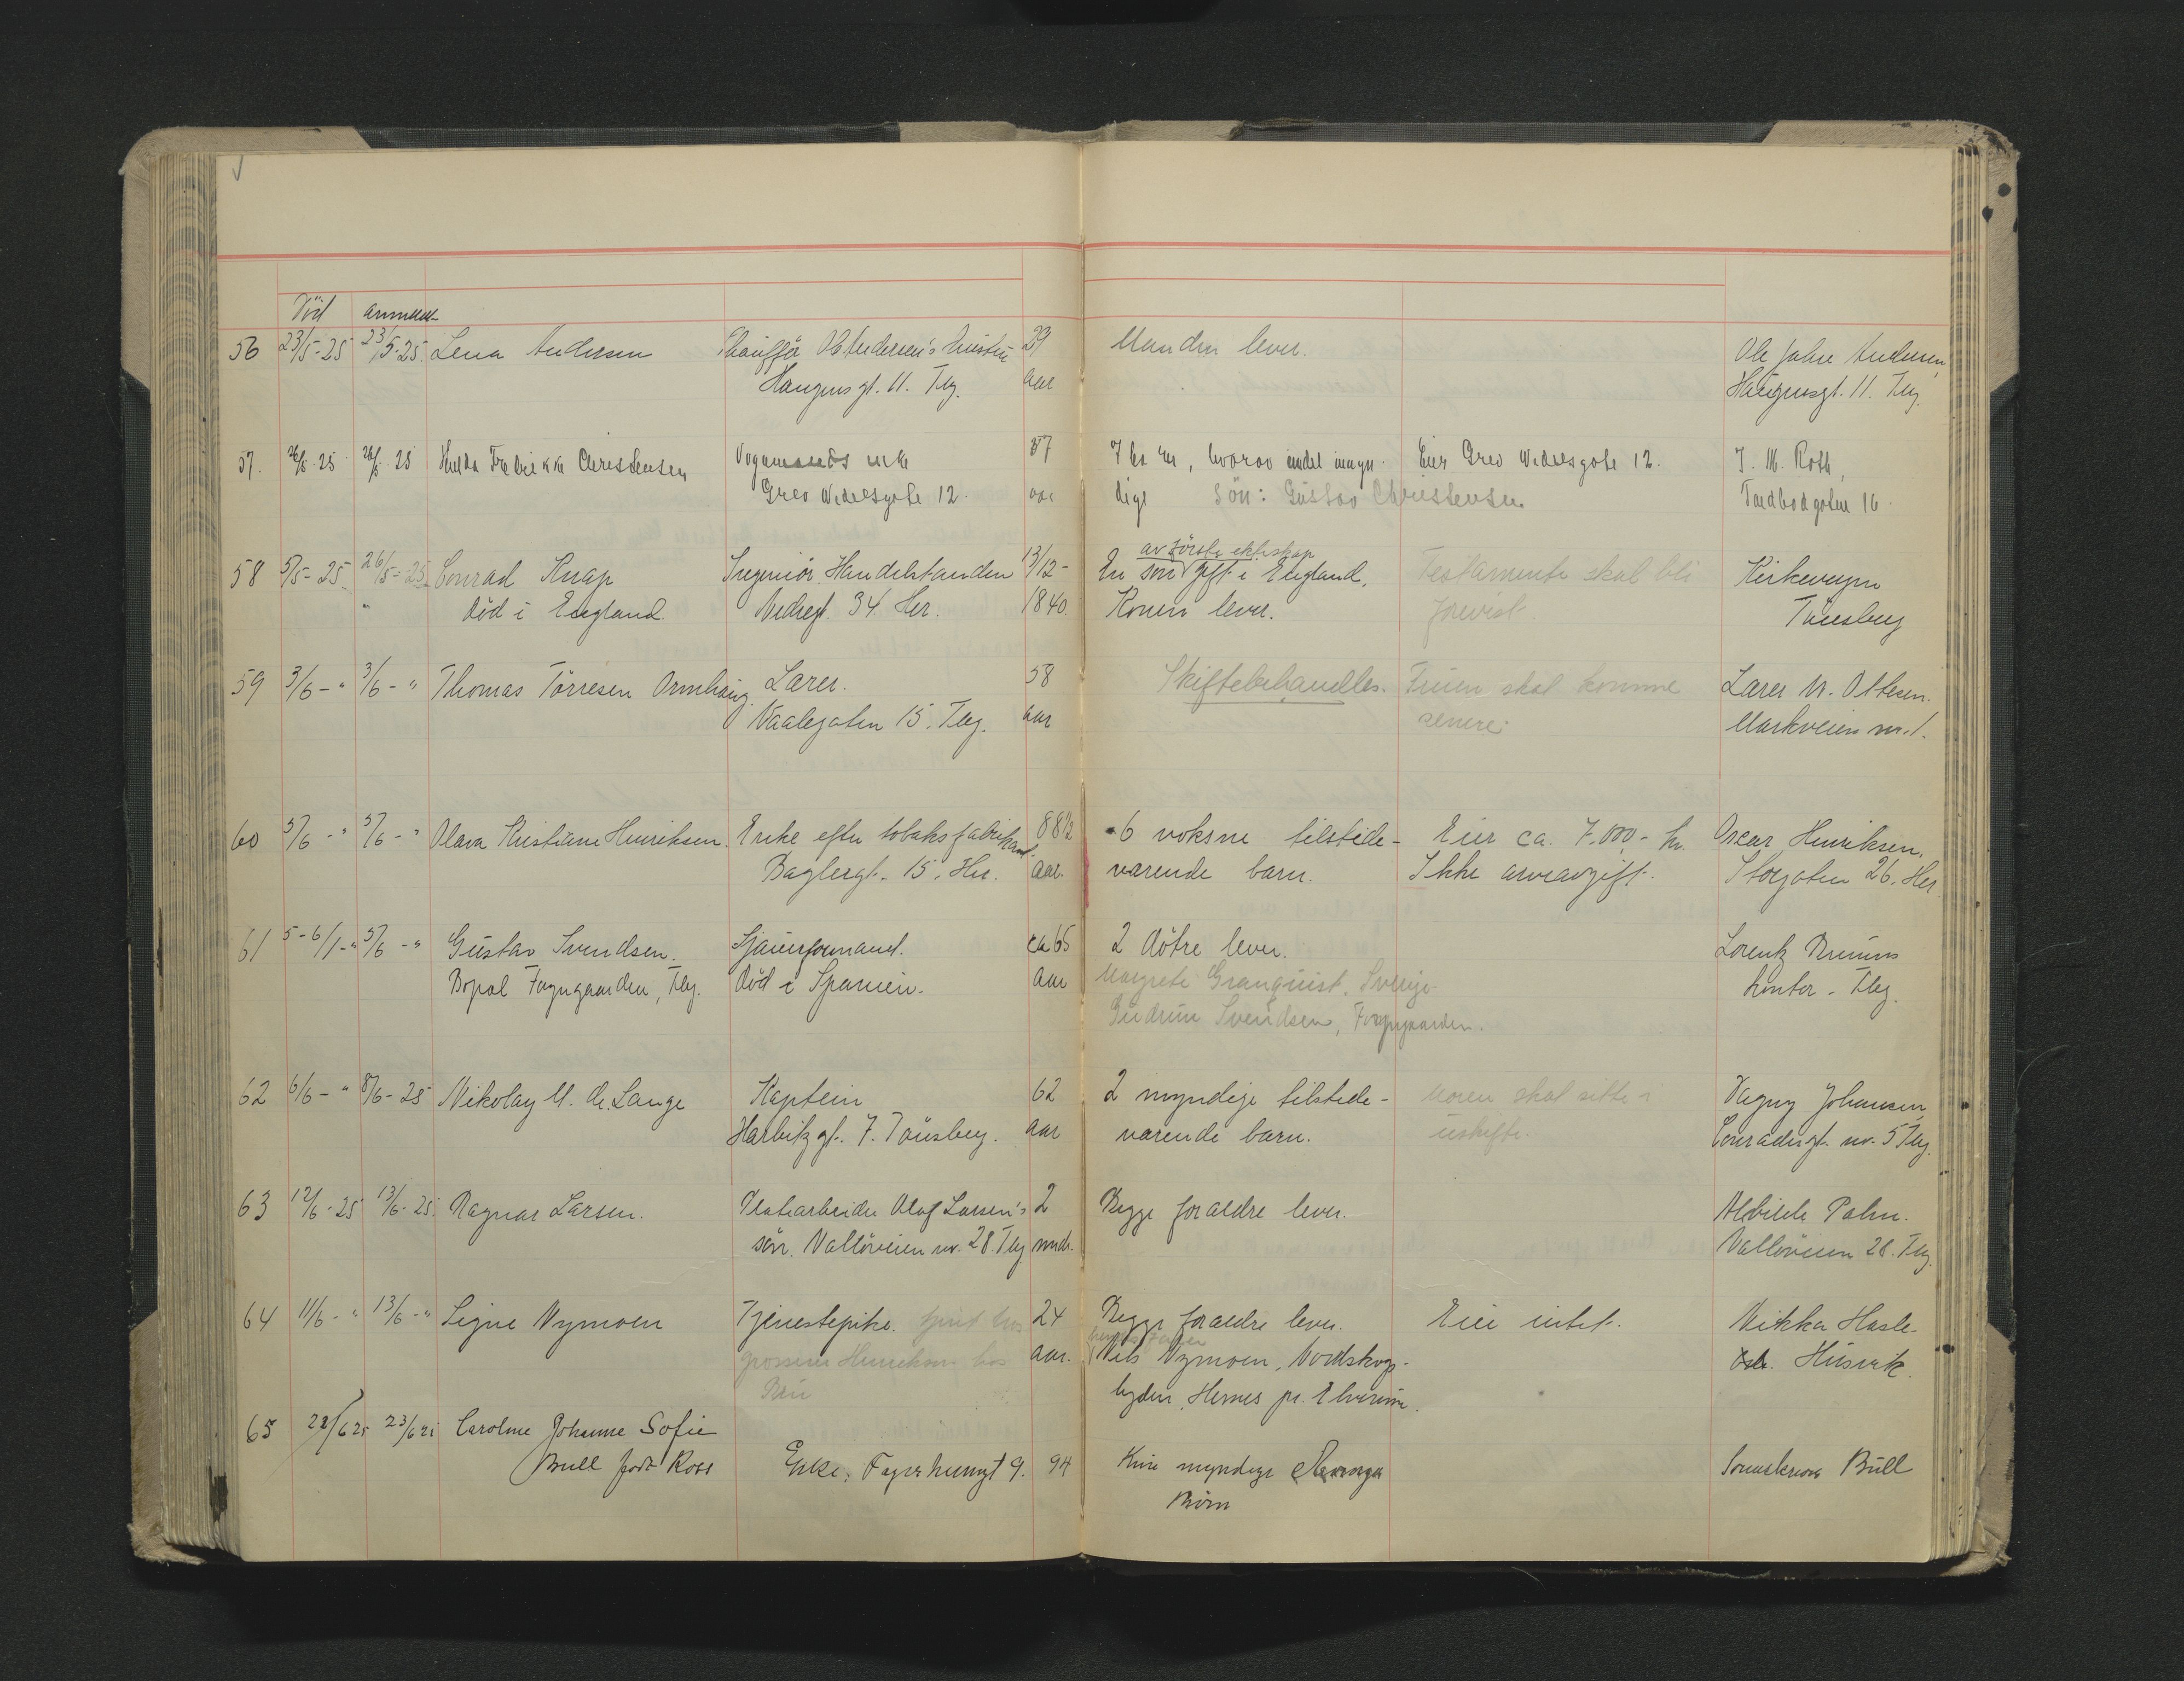 Död anmeldt
56 23/5-25 23/5-25. Lena Andersen Chauffør Ol. Andersen's hustru 39 Manden lever. Ole Johre Andersen
Haugensgt. 11. Tbg. aar Haugensgt. 11. Tbg.
57. 26/5.25 26/5.25 Hulda Fredrikke Christensen Vognmands enke 57 7 barn, hvorav endel umyn- Eier Grev Wedelsgate 12. J. M. Roth,
Grev Wedelsgate 12. aar dige Sön: Gustav Christensen Tordbodgaten 16
av förste ekteskap
58 5/5-25 26/5-25 Conrad Knap Ingeniör. Handelstanden 13/12- En sön gift i England. Testamente skal bli Kirkevergen
Död i England. Nedregt. 34. Her. 1840. Konen lever. forevist. Tönsberg
59 3/6-" 3/6-" Thomas Törresen Ormhaug Lærer. 58 Skiftebehandles. Fruen skal komme Lærer N. Ottesen.
Vaalegaten 15. Tbg. aar senere. Markveien nr. 1.
60 5/6-" 5/6-" Olava Kristiane Henriksen. Enke efter tobaksfabrikant. 88½ 6 voksne tilstede- Eier ca. 7.000,- kr. Oscar Henriksen,
Baglergt. 15. Her. aar. værende barn. Ikke arveavgift. Storgaten 26. Her.
61 5-6/1-" 5/6-" Gustav Svendsen. Sjauerformand. ca 65 2 döttre lever. Lorentz Bruuns
Bopæl Fagngaarden, Tbg. död i Spanien. aar Margrete Granquist. Sverige. kontor. Tbg.
Gudrun Svendsen, Fagngaarden.
62 6/6-" 8/6-25 Nikolay M. de Lange Kaptein 62 2 myndige tilstede- Konen skal sitte i Dagny Johansen
Harbitzgt. 7. Tönsberg. aar værende barn. uskifte. Conradisgt. nr. 5 Tbg.
63 12/6-25 13/6-25. Ragnar Larsen. Platearbeider Olaf Larsen's 2 Begge forældre lever. Alvilde Palm.
sön. Vallöveien nr. 28. Tbg mndr. Vallöveien 28. Tbg.
64 11/6-" 13/6-" Signe Nymoen Tjenestepike. tjent hos 24 Begge forældre lever. Eier intet. Nikka Hasle-
grosserer Henriksen hos aar. Nils Nymoen, Nordskog- Husvik.
bygden, Hernes pr. Elverum.
65 22/6 25 23/6 25 Caroline Johanne Sofie
Bull född Ross Enke. Fagerheimgt 9. 94 Kun myndige Sorenskriver Bull
Börn